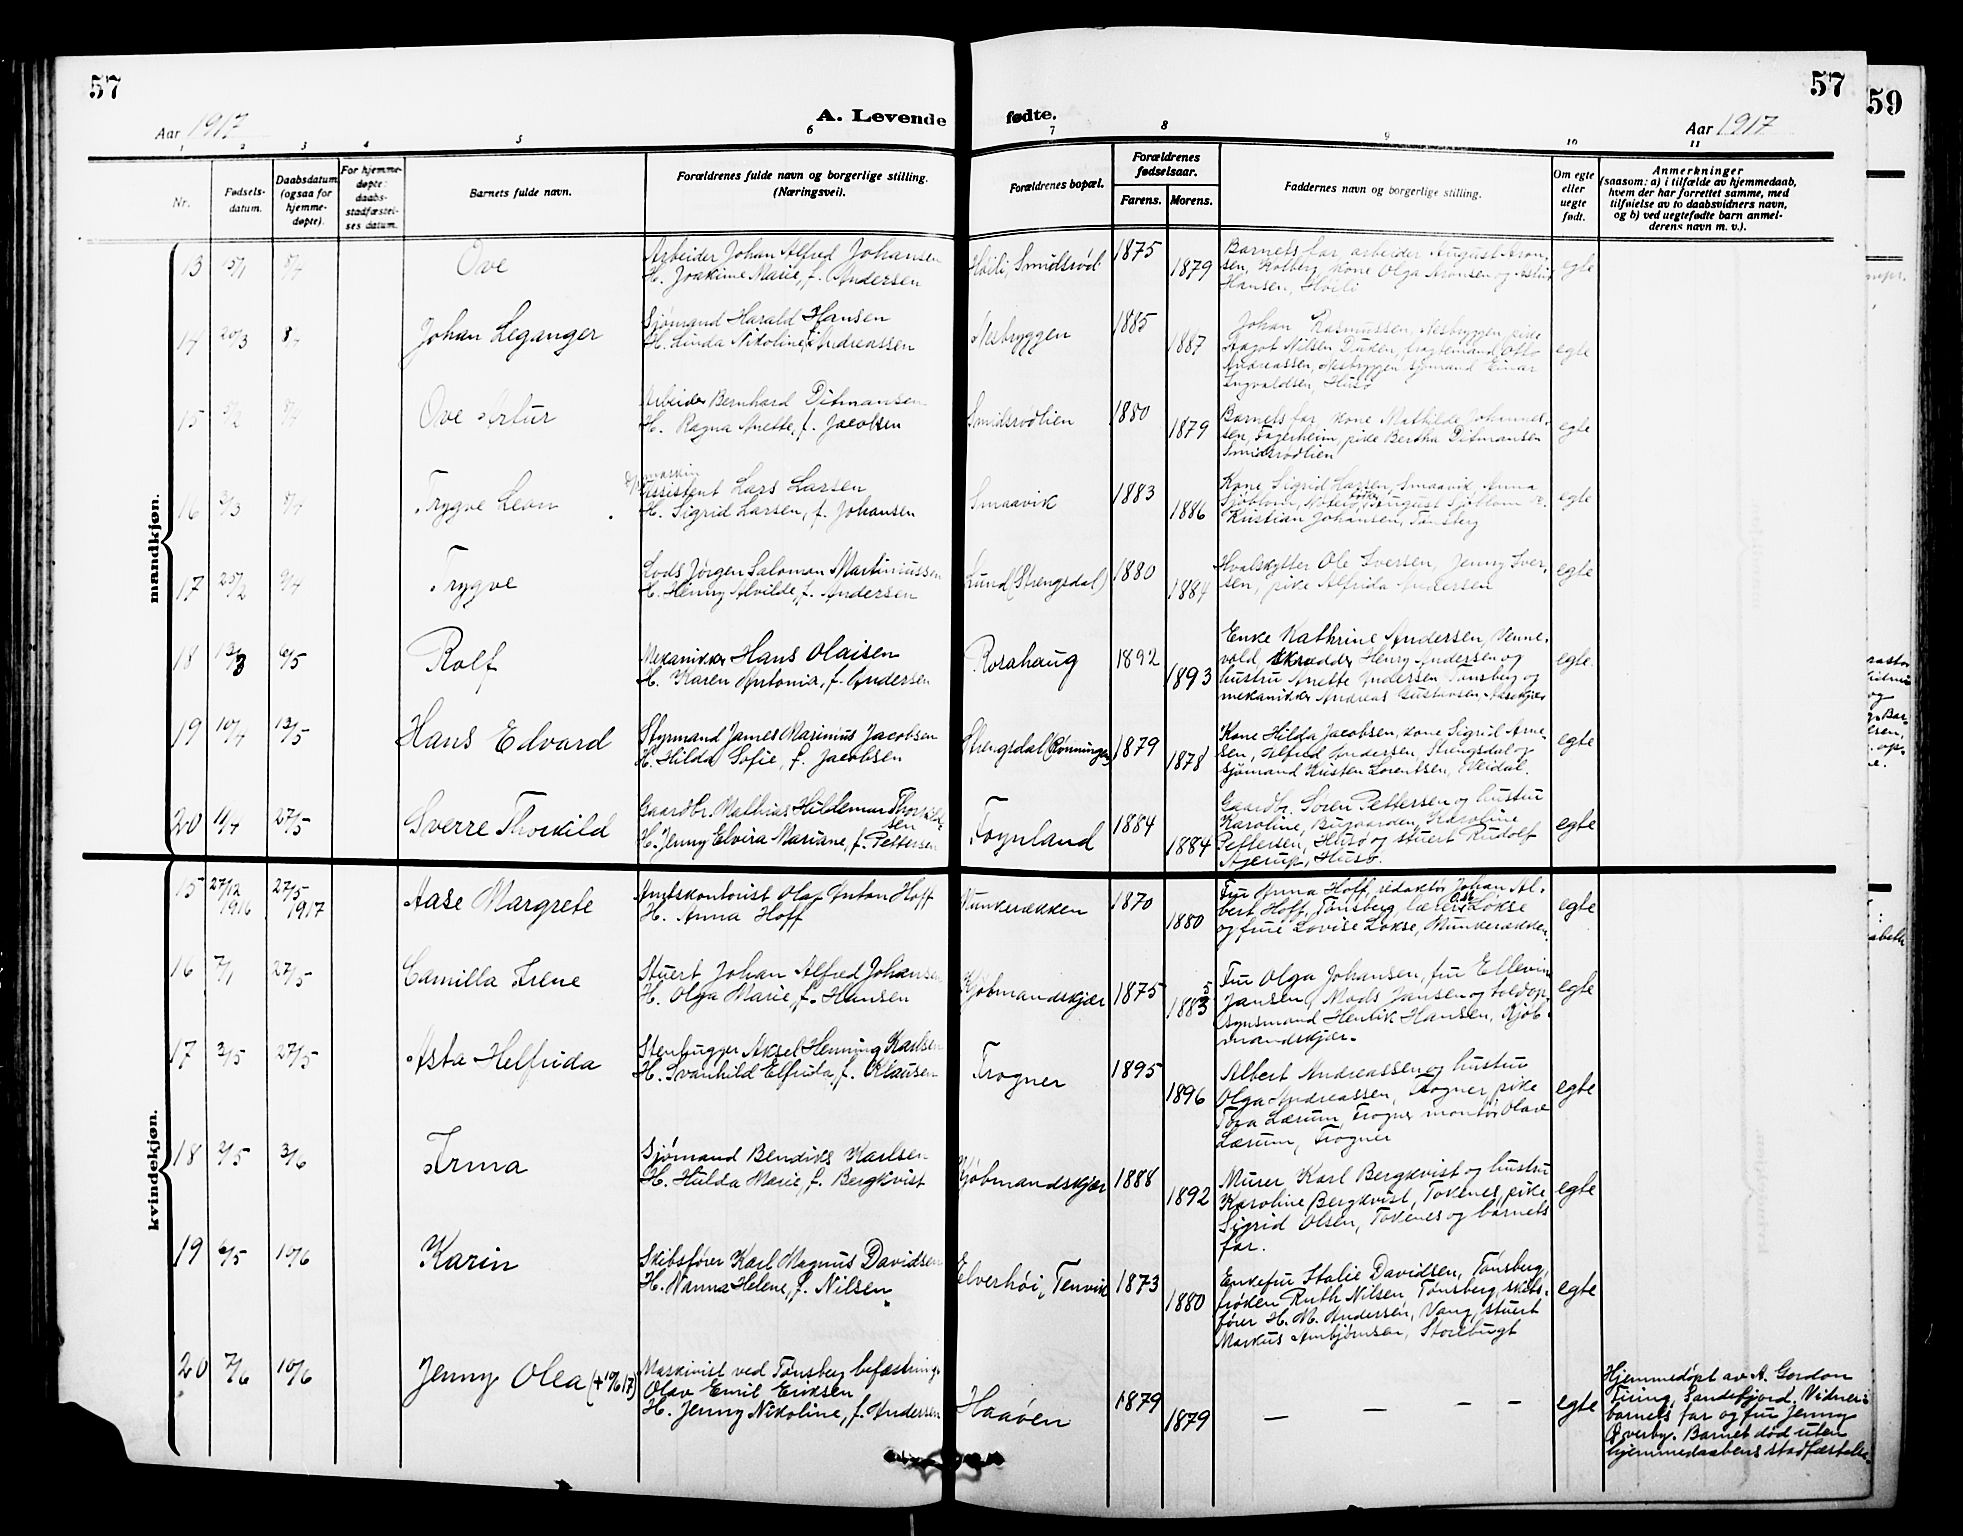 57
57
59
Aar 1917
A. Levende
fødte.
Aar 1917
1 2 3 4 5 6 7 8 9 10 11
Nr.
Fødsels-
datum.
Daabsdatum
(ogsaa for
hjemme-
døpte).
For hjemme-
døpte:
daabs-
stadfæstel-
ses datum.
Barnets fulde navn.
Forældrenes fulde navn og borgerlige stilling.
(Næringsvei).
Forældrenes bopæl.
Forældrenes
fødselsaar.
Farens. Morens.
Faddernes navn og borgerlige stilling.
Om egte
eller
uegte
født.
Anmerkninger
(saasom: a) i tilfælde av hjemmedaab,
hvem der har forrettet samme, med
tilføielse av to daabsvidners navn,
og b) ved uegtefødte barn anmel-
derens navn m. v.).
mandkjøn.
13 15/1 8/4 Ove
Arbeider Johan Alfred Johansen
H. Joakime Marie, f. Andersen
Høili, Smidsrød 1875 1879
Barnets far, arbeider August Aron-
sen, Kolberg, kone Olga Aronsen og
Hansen, Høili
egte
14 20/3 8/4 Johan Leganger
Sjømand Harald Hansen
H. Linda Nikoline, f. Andreassen
Nesbryggen 1885 1887
Johan Rasmussen, Nesbryggen, pike
Dagot Nilsen Duken, fragtemand Otto
Andreassen, Nesbryggen, sjømand Einar
Ingvaldsen, Husø
egte
15 5/2 8/4 Ove Artur
Arbeider Bernhard Ditmansen
H. Ragna Anette, f. Jacobsen
Smidsrødlien 1880 1879
Barnets far, kone Mathilde Johannes-
sen, Fagerheim, pike Bertha Ditmansen
Smidsrødlien
egte
16 3/3 8/4 Trygve Leon
maskin
assistent Lars Larsen
H. Sigrid Larsen, f. Johansen
Smaavik 1883 1886
Kone Sigrid Larsen, Smaavik, Anna
Sjøblom, Nøterø, August Sjøblom og
Kristian Johansen, Tønsberg
egte
17 25/2 9/4 Trygve
Lods Jørgen Salomon Martiniussen
H. Henny Alvilde, f. Andersen
Lund (Strengsdal) 1880 1884
Hvalskytter Ole Iversen, Jenny Iver-
sen, pike Alfrida Andersen
egte
18 13/3 6/5 Rolf
Mekaniker Hans Olaisen
H. Karen Antonia, f. Andersen
Rosahaug 1892 1893
Enke Kathrine Andersen, Venne-
vold, skrædder Henry Andersen og
hustru Anette Andersen Tønsberg og
mekaniker Andreas Gustavsen,
egte
19 10/4 13/5 Hans Edvard
Styrmand James Marinius Jacobsen
H. Hilda Sofie, f. Jacobsen
Strengsdal (Rønningen) 1879 1878
Kone Hilda Jacobsen, kone Sigrid Arne-
sen, Alfred Andersen, Strengsdal og
sjømand Kristen Lorentsen, Veidal.
egte
20 11/4 27/5 Sverre Thorkild
Gaardbr. Mathias Hildemar Thorkild-
sen
H. Jenny Elvira Mariane, f. Pettersen
Føynland 1884 1884
Gaardbr. Søren Pettersen og hustru
Karoline, Bugaarden, Karoline
Pettersen, Husø og stuert Rudolf
Ajerup, Husø.
egte
kvindekjøn.
15 27/12 1916 27/5 1917 Aase Margrete
Amtskontorist Olaf Anton Hoff
H. Anna Hoff
Munkerækken 1870 1880
Fru Anna Hoff, redaktør Johan Al-
bert Hoff, Tønsberg, lærer O.M. Løkse
og frue Lovise Løkse, Munkerækken.
egte
16 7/1 27/5 Camilla Irene
Stuert Johan Alfred Johansen
H. Olga Marie, f. Hansen
Kjøbmandskjær 1875 1883 5
Fru Olga Johansen, fru Ellevine
Jansen, Mads Jansen og toldop-
synsmand Henrik Hansen, Kjøb-
mandskjær.
egte
17 3/5 27/5 Asta Helfrida
Stenhugger Aksel Henning Karlsen
H. Svanhild Elfrida, f. Klausen
Trogner 1895 1896
Albert Andreassen og hustru
Olga Andreassen, Trogner, pike
Tora Lærum, Trogner, montør Olav
Lærum, Trogner
egte
18 2/5 3/6 Irma
Sjømand Bendiks Karlsen
H. Hulda Marie, f. Bergkvist
Kjøbmandskjær 1888 1892
Murer Karl Bergkvist og hustru
Karoline Bergkvist, Tokenes, pike
Sigrid Olsen, Tokenes og barnets
far.
egte
19 6/5 10/6 Karin
Skibsfører Karl Magnus Davidsen
H. Nanna Helene, f. Nilsen
Elverhøi, Tenvik 1873 1880
Enkefru Stalie Davidsen, Tønsberg,
frøken Ruth Nilsen Tønsberg, skibs-
fører H. M. Andersen, Vang, stuert
Markus Arnbjørnsen, Storeburgt
egte
20 7/6 10/6 Jenny Olea (+ 10/6 17)
Maskinist ved Tønsberg befæstning
Olav Emil Eriksen
H. Jenny Nikoline, f. Andersen
Haaøen 1879 1879
— — — —
egte
Hjemmedøpt av A. Gordon
Firing, Sandefjord. Vidner:
barnets far og fru Jenny
Øverby. Barnet død uten
hjemmedaabens stadfæstelse.